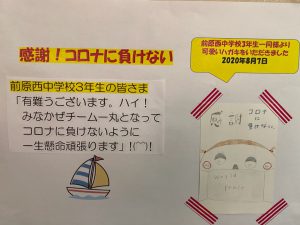 感謝！コロナに負けない
前原西中学校3年生一同様より
可愛いハガキをいただきました
2020年8月7日
前原西中学校3年生の皆さま
「有難うございます。ハイ！
みなかぜチーム一丸となって
コロナに負けないように
一生懸命頑張ります」!(^^)!
感謝
コロナ
に
負けない。